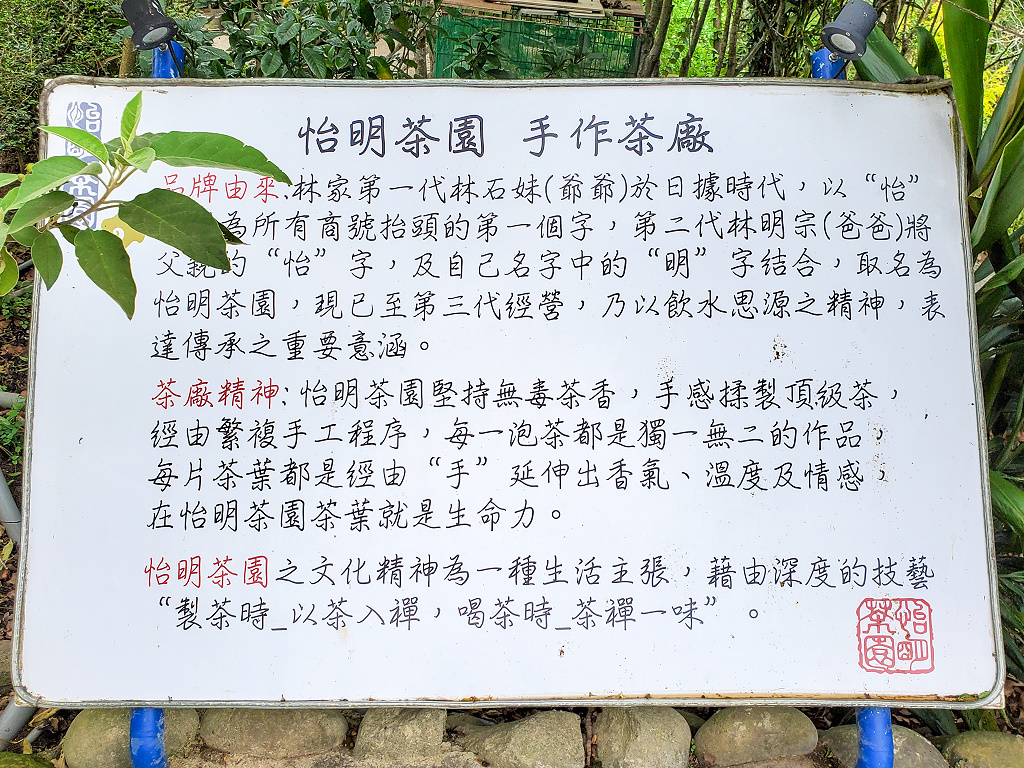 怡明茶園 手作茶廠
品牌由來:林家第一代林石妹(爺爺)於日據時代，以“怡”
為所有商號抬頭的第一個字，第二代林明宗(爸爸)將
父親的“怡”字，及自己名字中的“明”字結合，取名為
怡明茶園，現已至第三代經營，乃以飲水思源之精神，表
達傳承之重要意涵。
茶廠精神:怡明茶園堅持無毒茶香，手感揉製頂級茶，
經由繁複手工程序，每一泡茶都是獨一無二的作品，
每片茶葉都是經由“手”延伸出香氣、溫度及情感，
在怡明茶園茶葉就是生命力。
怡明茶園之文化精神為一種生活主張，藉由深度的技藝
“製茶時_以茶入禪，喝茶時_茶禪一味”。
怡明
茶園